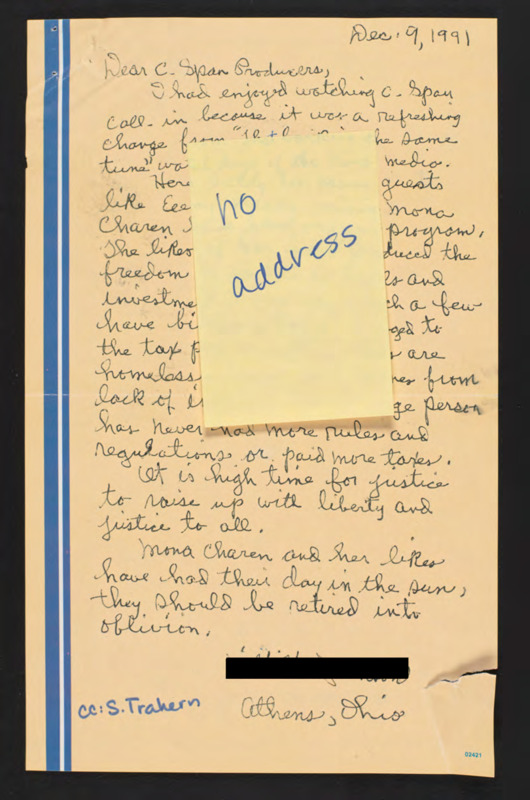 Dec. 9, 1991
Dear C. Span Producers,
I had enjoyed watching C. Span
call-in because it was a refreshing
change he same
tune" wa media.
Here guests
like Mona
Charen program.
The likes duced the
freedom and
investme ch a few
have bi ged to
the tax p are
homeless from
lack of ge person
has never had more rules and
regulations or paid more taxes.
It is high time for justice
to raise up with liberty and
justice to all.
Mona Charen and her likes
have had their day in the sun,
they should be retired into
oblivion.
no
address
cc: S. Trahern
Athens, Ohio
02421